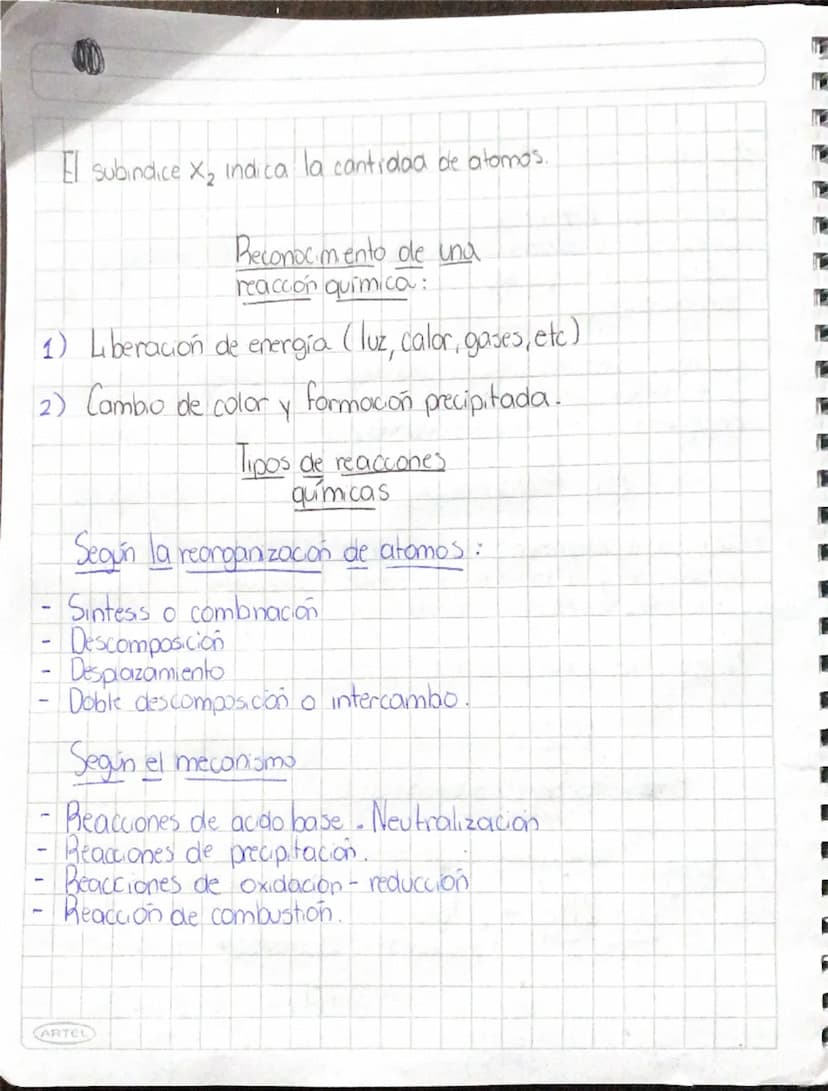 El subindice X₂ indica la cantidad de atomos.
Reconocimiento de una
reacción química:
1) Liberación de energía (luz, calor, gases, etc)
2) Cambio de color y formación precipitada.
Tipos de reacciones
químicas
Según la reorganización de atomos:
- Sintesis o combinación
- Descomposición
- Desplazamiento
- Doble descomposición o intercambio.
Según el mecanismo
- Reacciones de acido base. Neutralización
- Reacciones de precipitación.
- Reacciones de oxidación - reducción
- Reacción de combustión.
ARTEL